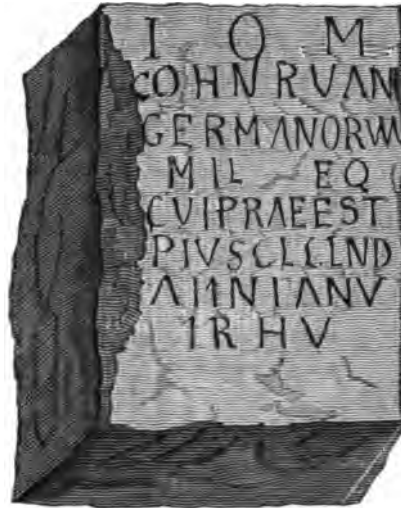 I O M
COH N RVAN
GERMANORVM
MIL EQ
CVI PRAEEST
PIVS CL CLND
AMNIANV
IRHV